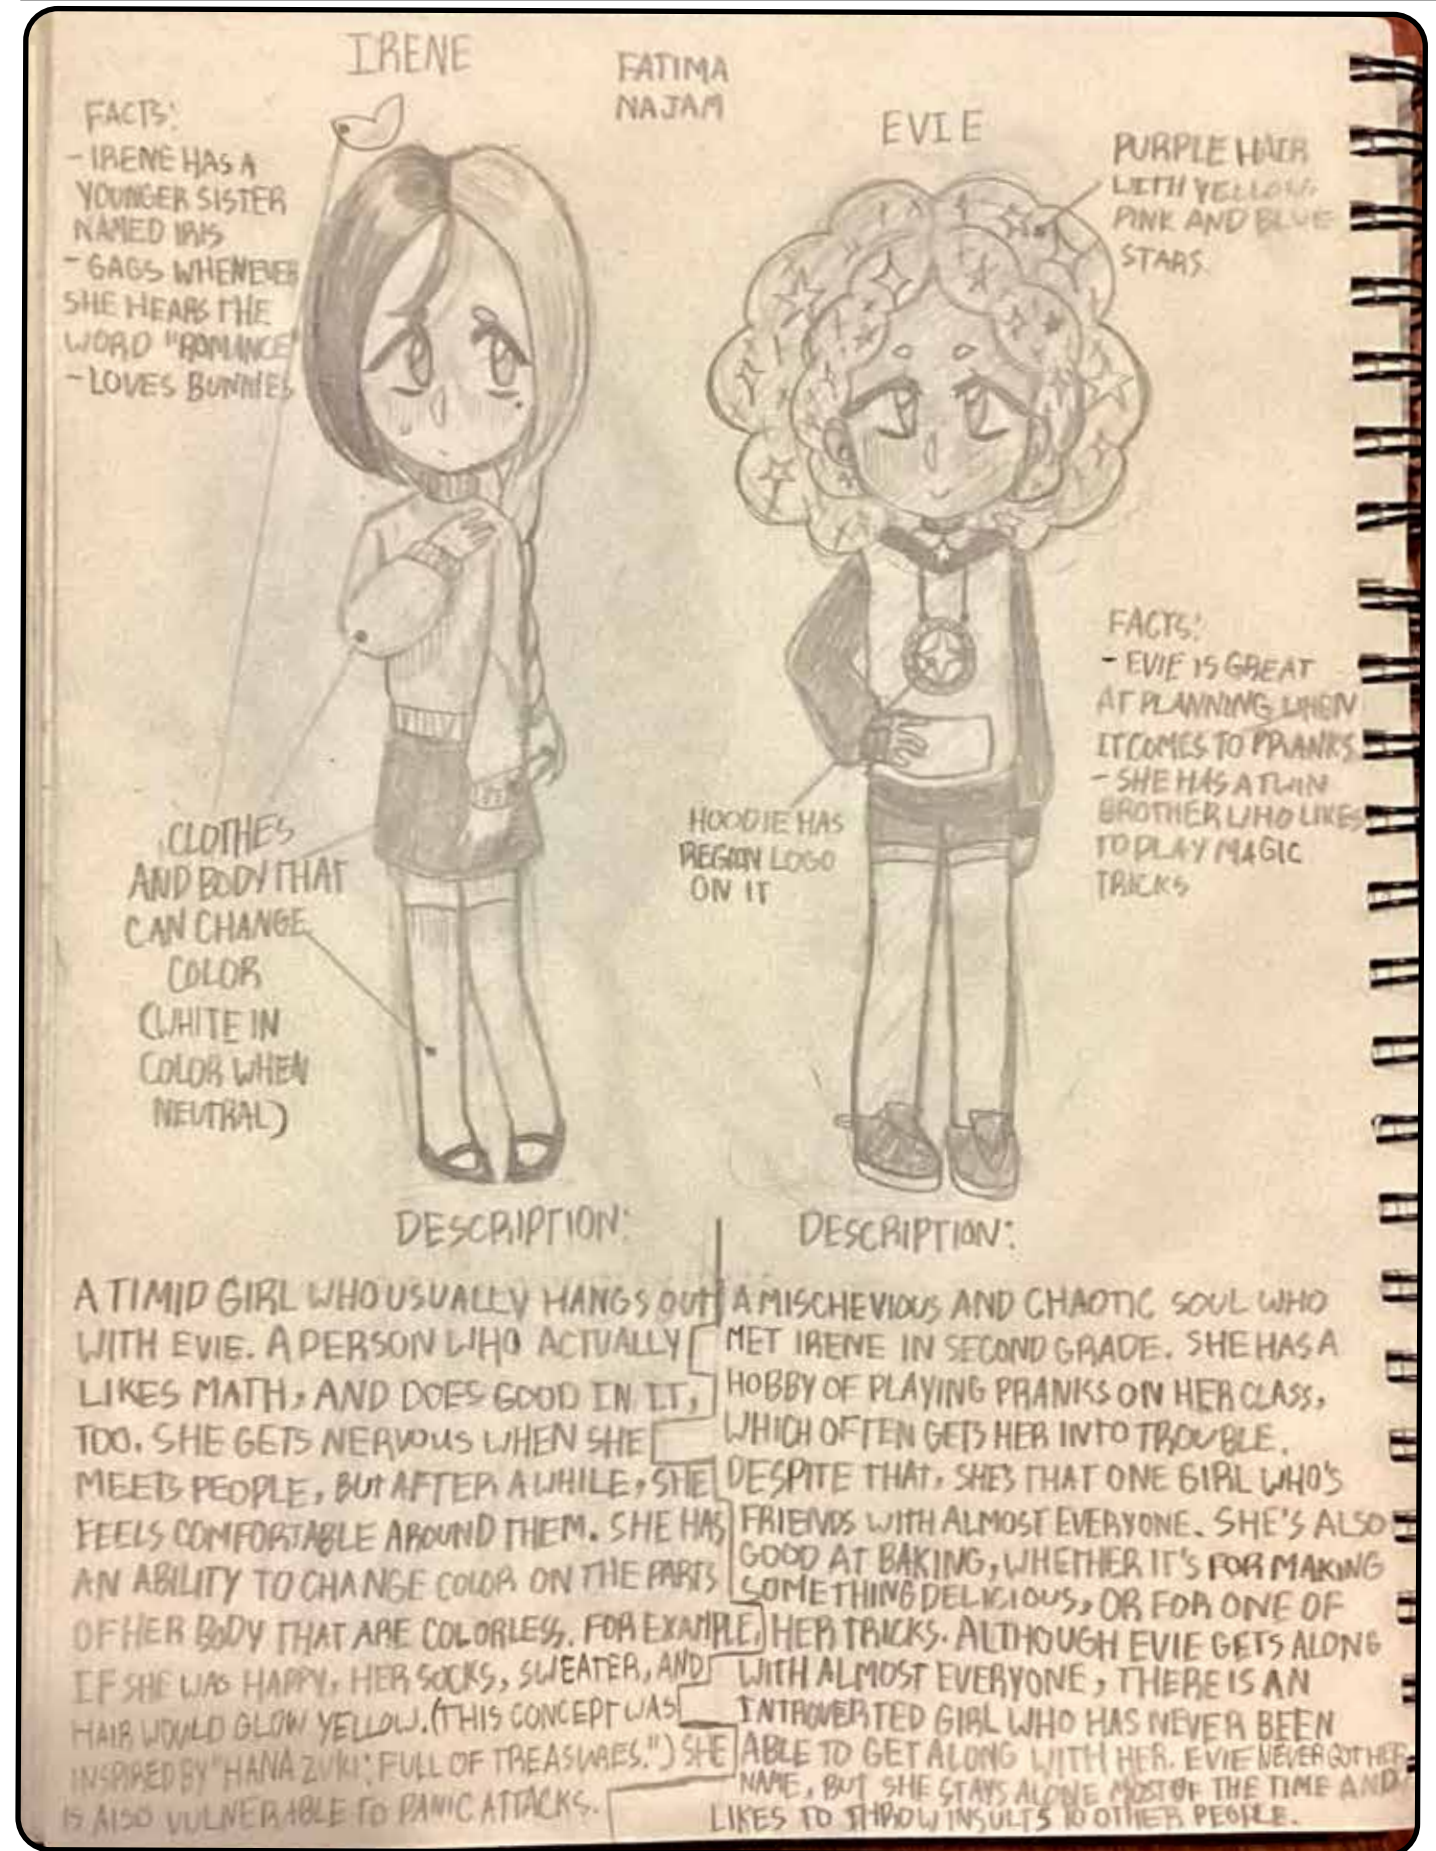 IRENE
FATIMA
NAJAM
FACTS:
- IRENE HAS A
YOUNGER SISTER
NAMED IRIS
- GAGS WHENEVER
SHE HEARS THE
WORD "ROMANCE"
- LOVES BUNNIES
EVIE
PURPLE HAIR
WITH YELLOW,
PINK AND BLUE
STARS
CLOTHES
AND BODY THAT
CAN CHANGE
COLOR
(WHITE IN
COLOR WHEN
NEUTRAL)
HOODIE HAS
REGION LOGO
ON IT
FACTS:
- EVIE IS GREAT
AT PLANNING WHEN
IT COMES TO PRANKS
- SHE HAS A TWIN
BROTHER WHO LIKES
TO PLAY MAGIC
TRICKS
DESCRIPTION:
A TIMID GIRL WHO USUALLY HANGS OUT
WITH EVIE. A PERSON WHO ACTUALLY
LIKES MATH, AND DOES GOOD IN IT,
TOO. SHE GETS NERVOUS WHEN SHE
MEETS PEOPLE, BUT AFTER A WHILE, SHE
FEELS COMFORTABLE AROUND THEM. SHE HAS
AN ABILITY TO CHANGE COLOR ON THE PARTS
OF HER BODY THAT ARE COLORLESS. FOR EXAMPLE,
IF SHE WAS HAPPY, HER SOCKS, SWEATER, AND
HAIR WOULD GLOW YELLOW. (THIS CONCEPT WAS
INSPIRED BY "HANAZUKI: FULL OF TREASURES.") SHE
IS ALSO VULNERABLE TO PANIC ATTACKS.
DESCRIPTION:
A MISCHEVIOUS AND CHAOTIC SOUL WHO
MET IRENE IN SECOND GRADE. SHE HAS A
HOBBY OF PLAYING PRANKS ON HER CLASS,
WHICH OFTEN GETS HER INTO TROUBLE.
DESPITE THAT, SHE'S THAT ONE GIRL WHO'S
FRIENDS WITH ALMOST EVERYONE. SHE'S ALSO
GOOD AT BAKING, WHETHER IT'S FOR MAKING
SOMETHING DELICIOUS, OR FOR ONE OF
HER TRICKS. ALTHOUGH EVIE GETS ALONG
WITH ALMOST EVERYONE, THERE IS AN
INTROVERTED GIRL WHO HAS NEVER BEEN
ABLE TO GET ALONG WITH HER. EVIE NEVER GOT HER
NAME, BUT SHE STAYS ALONE MOST OF THE TIME AND
LIKES TO THROW INSULTS TO OTHER PEOPLE.